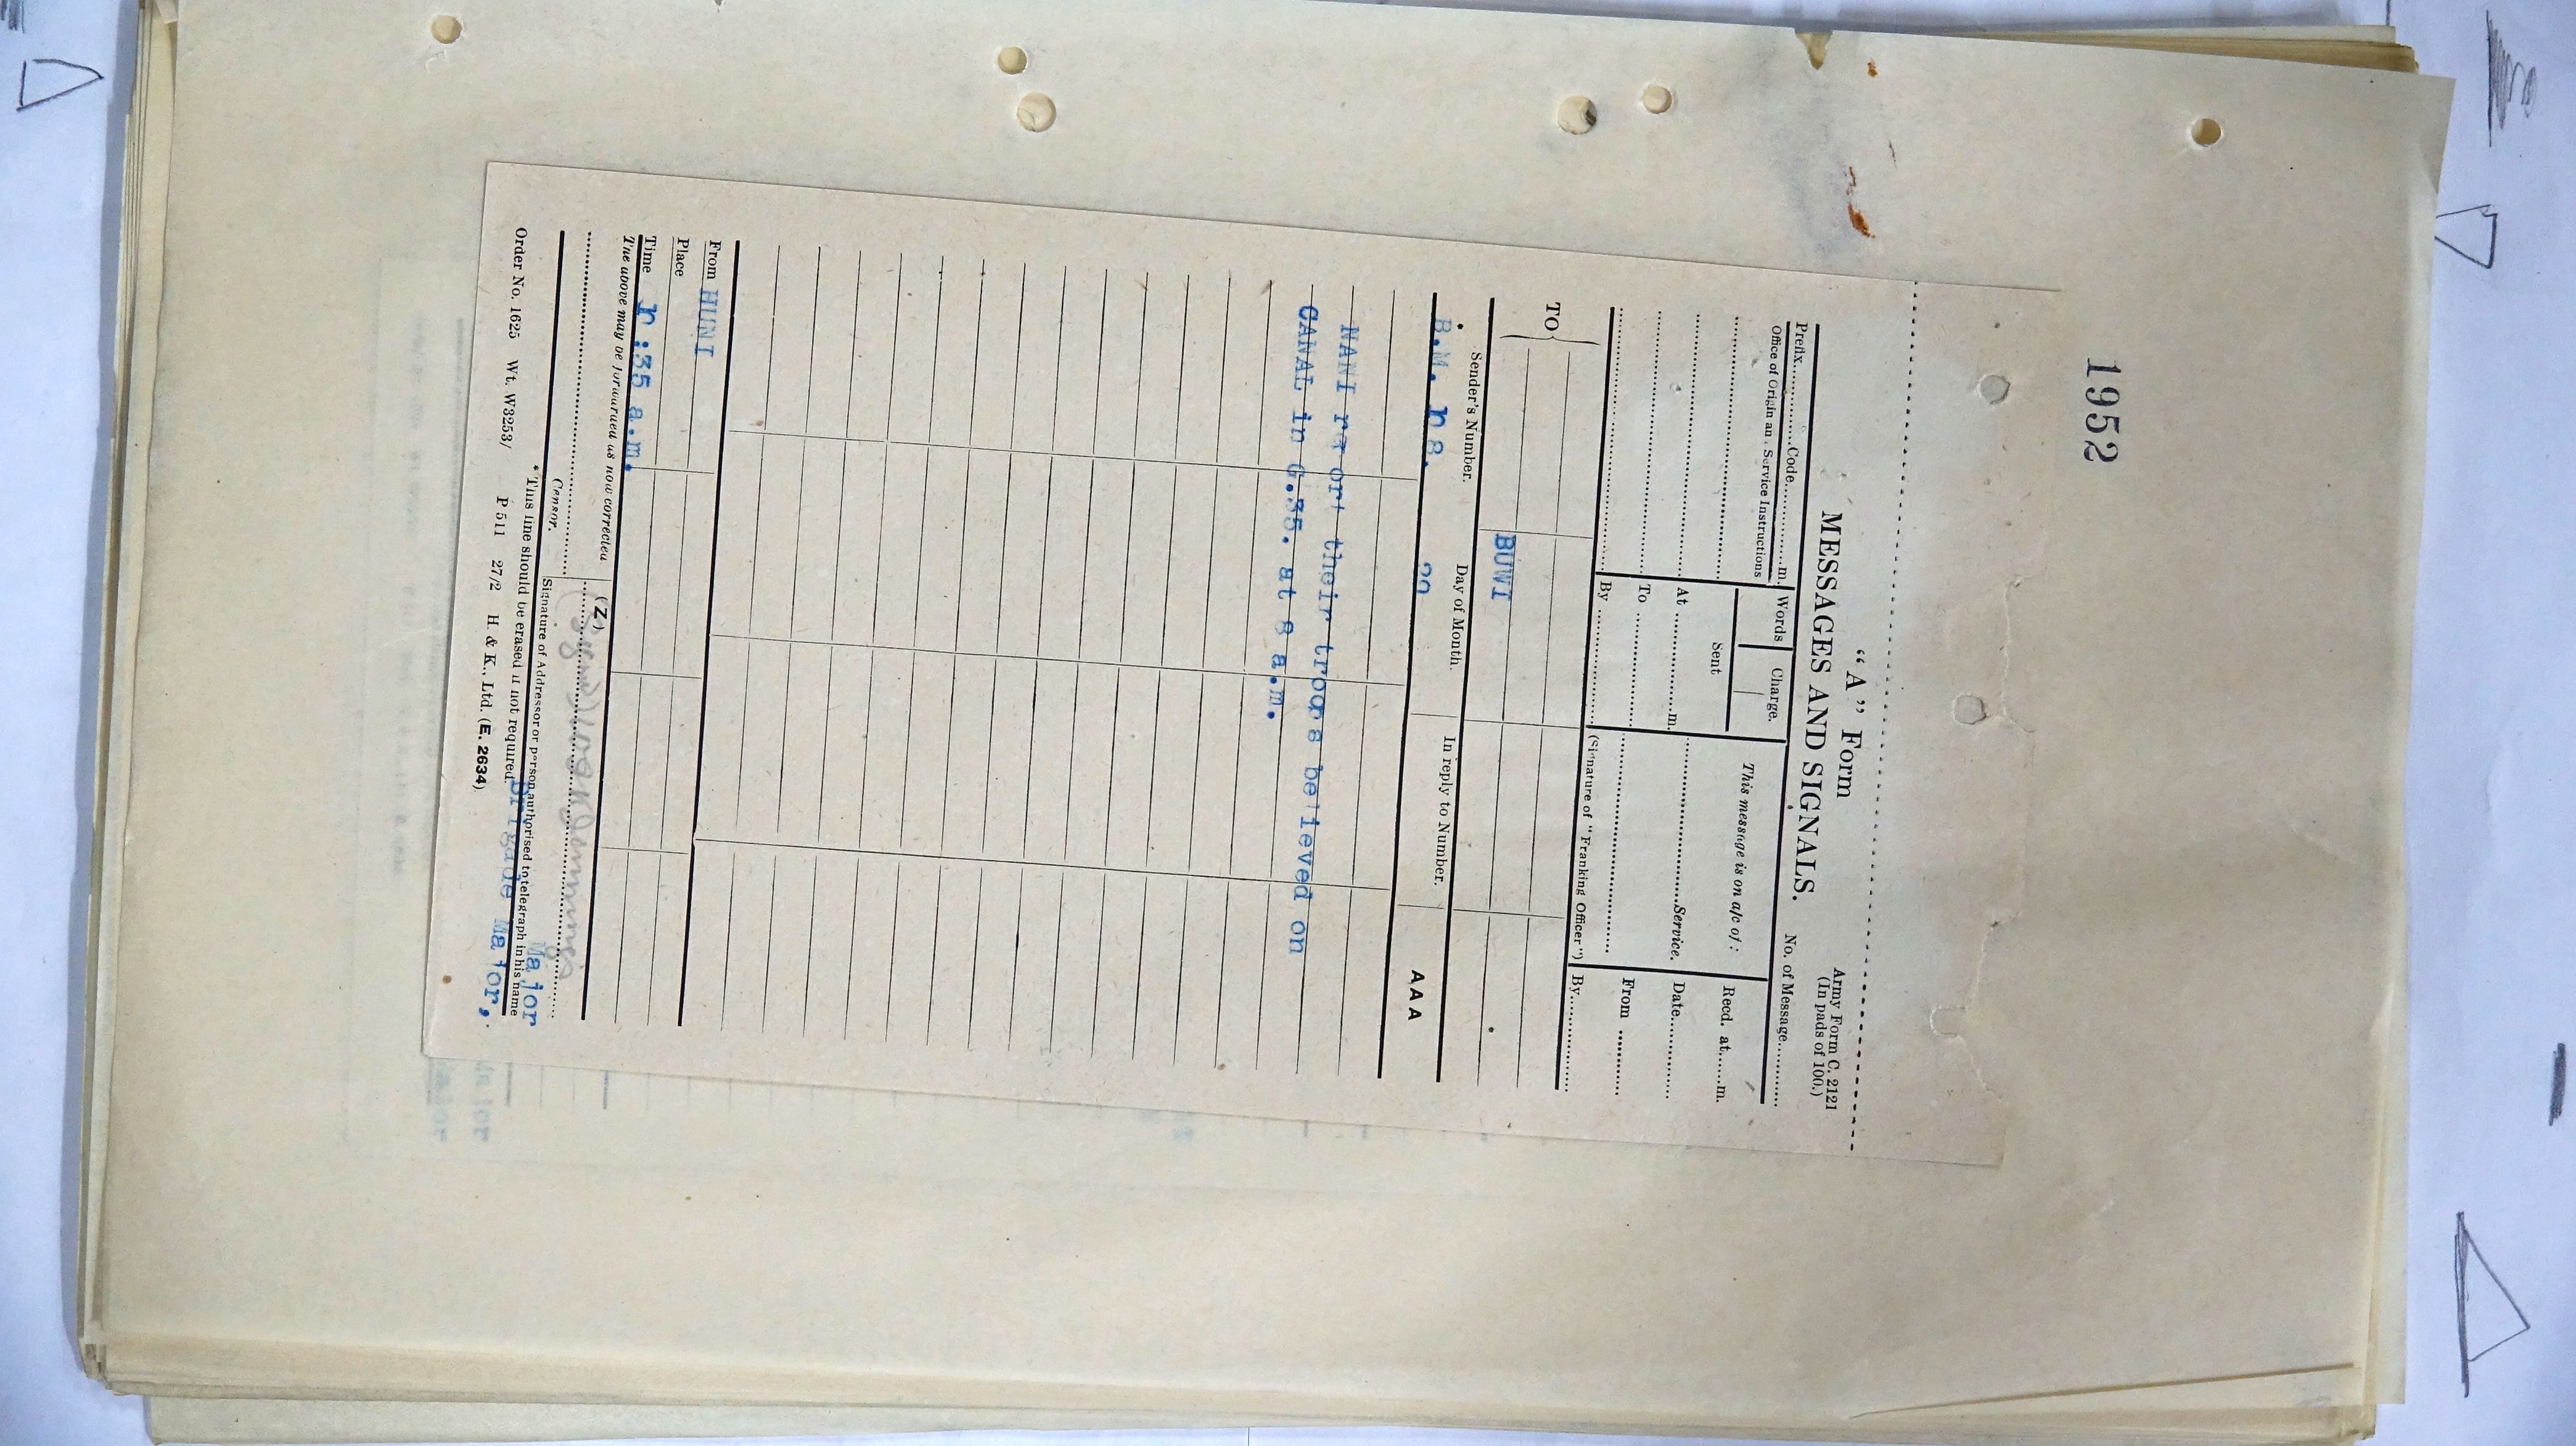 1952
"A" Form
MESSAGES AND SIGNALS.
Army Form C. 2121
(In pads of 100.)
No. of Message............
Prefix............Code............m.
Office of Origin an . Service Instructions
Words
Charge.
Sent
At ............m.
To ............
By ............
This message is on a/c of :
............Service.
(Signature of "Franking Officer")
Recd. at......m.
Date............
From ............
By............
TO
BUWI
Sender's Number.
Day of Month.
In reply to Number.
A A A
B.M. 8.
NANI their troops believed on
CANAL in G.35. at 8 a.m.
From HUNI
Place
Time :35 a.m.
The above may be forwarded as now corrected
(Z)
Censor.
Signature of Addressor or person authorised to telegraph in his name
Major
*This line should be erased if not required.
Brigade Major.
Order No. 1625 Wt. W3253/ P 511 27/2 H. & K., Ltd. (E. 2634).